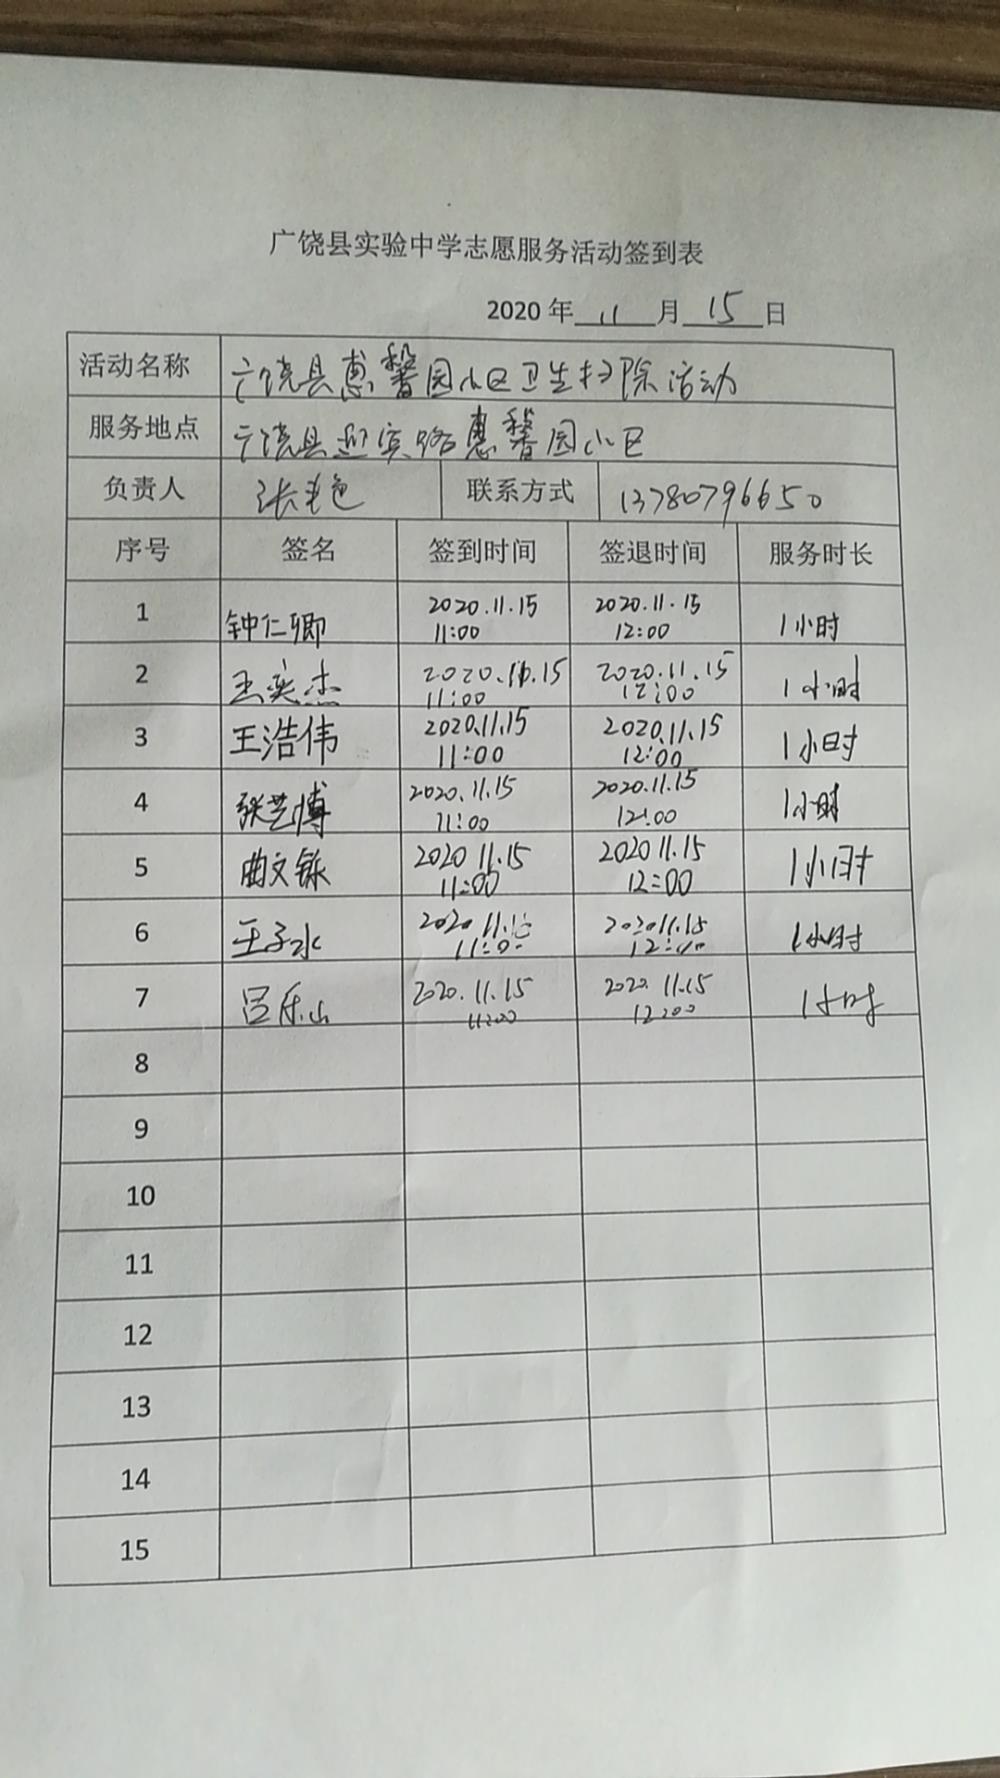 广饶县实验中学志愿服务活动签到表
2020 年 11 月 15 日
活动名称 广饶县惠馨园小区卫生扫除活动
服务地点 广饶县迎宾路惠馨园小区
负责人 张 联系方式 13780796650
序号 签名 签到时间 签退时间 服务时长
1 钟仁卿 2020.11.15 11:00 2020.11.15 12:00 1小时
2 王奕杰 2020.11.15 11:00 2020.11.15 12:00 1小时
3 王浩伟 2020.11.15 11:00 2020.11.15 12:00 1小时
4 张艺博 2020.11.15 11:00 2020.11.15 12:00 1小时
5 曲文铄 2020 11.15 11:00 2020 11.15 12:00 1小时
6 王子水 2020.11.15 11:00 2020.11.15 12:00 1小时
7 吕乐山 2020.11.15 11:00 2020.11.15 12:00 1小时
8
9
10
11
12
13
14
15